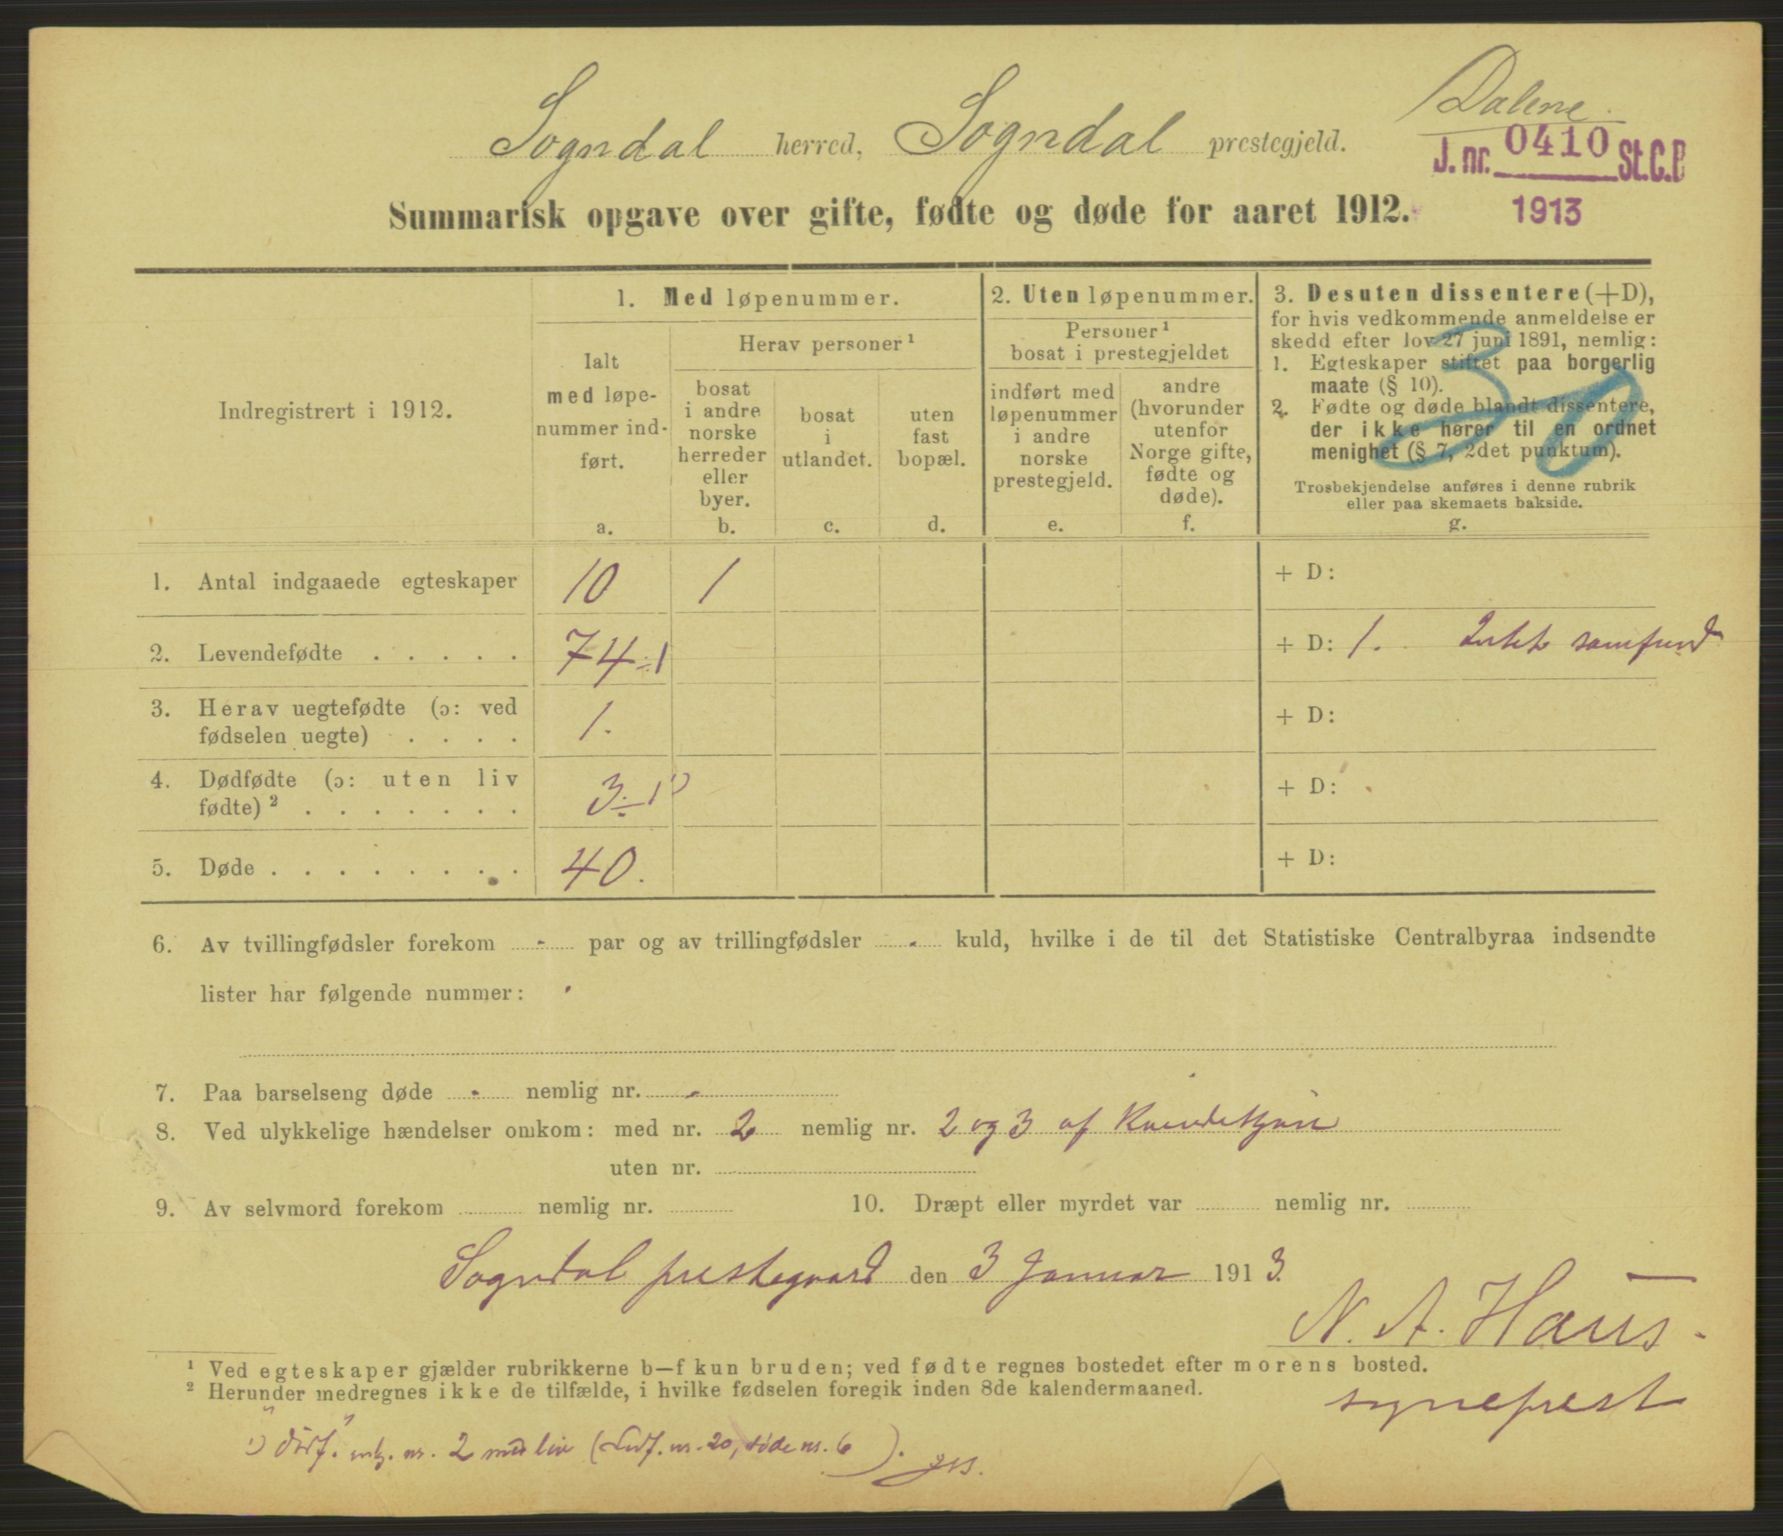 Dalene.
Sogndal herred, Sogndal prestegjeld.
J. nr. 0410 St.C.B
1913
Summarisk opgave over gifte, fødte og døde for aaret 1912.
Indregistrert i 1912.
1. Med løpenummer.
Ialt
med løpe-
nummer ind-
ført.
a.
Herav personer ¹
bosat
i andre
norske
herreder
eller
byer.
b.
bosat
i
utlandet.
c.
uten
fast
bopæl.
d.
2. Uten løpenummer.
Personer ¹
bosat i prestegjeldet
indført med
løpenummer
i andre
norske
prestegjeld.
e.
andre
(hvorunder
utenfor
Norge gifte,
fødte og
døde).
f.
3. Desuten dissentere (+D),
for hvis vedkommende anmeldelse er
skedd efter lov 27 juni 1891, nemlig:
1. Egteskaper stiftet paa borgerlig
maate (§ 10).
2. Fødte og døde blandt dissentere,
der ikke hører til en ordnet
menighet (§ 7, 2det punktum).
Trosbekjendelse anføres i denne rubrik
eller paa skemaets bakside.
g.
30
1. Antal indgaaede egteskaper 10 1 + D:
2. Levendefødte . . . . . 74 ÷ 1 + D: 1. samfund
3. Herav uegtefødte (ɔ: ved
fødselen uegte) . . . . 1. + D:
4. Dødfødte (ɔ: uten liv
fødte) ² . . . . . . . 3 ÷ 1 ¹) + D:
5. Døde . . . . . . . . 40. + D:
6. Av tvillingfødsler forekom - par og av trillingfødsler - kuld, hvilke i de til det Statistiske Centralbyraa indsendte
lister har følgende nummer:
7. Paa barselseng døde - nemlig nr. -
8. Ved ulykkelige hændelser omkom: med nr. 2 nemlig nr. 2 og 3 af Kvindekjøn
uten nr.
9. Av selvmord forekom nemlig nr.
10. Dræpt eller myrdet var nemlig nr.
Sogndal prestegaard den 3 Januar 1913.
N. A. Haus
sogneprest
¹ Ved egteskaper gjælder rubrikkerne b—f kun bruden; ved fødte regnes bostedet efter morens bosted.
² Herunder medregnes ikke de tilfælde, i hvilke fødselen foregik inden 8de kalendermaaned.
¹) "dødf." nr. 2 med liv (nr. 20, døde nr. 6).